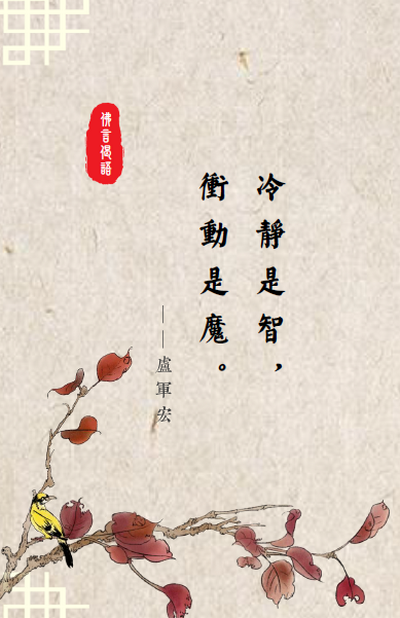 冷靜是智，
衝動是魔。
——盧軍宏
佛言偈語